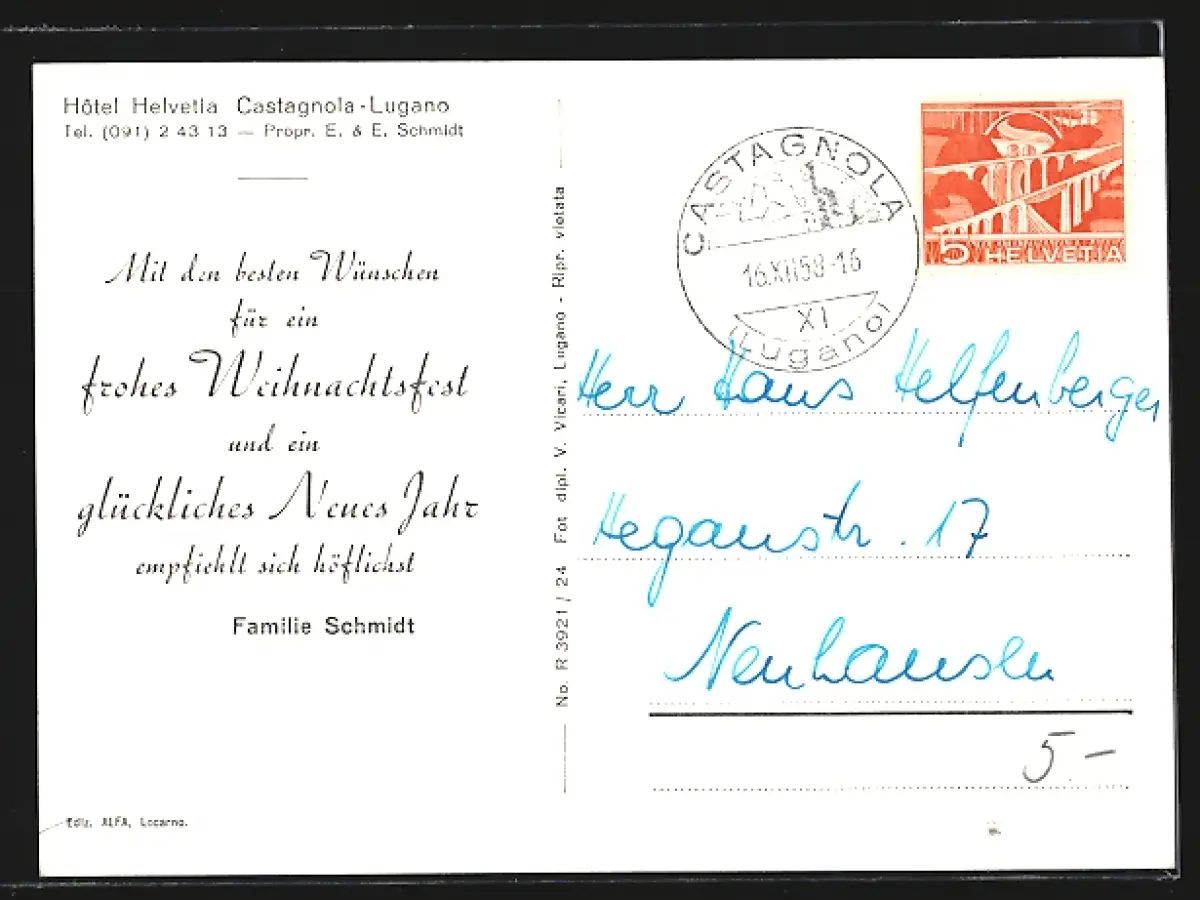 Hôtel Helvetia Castagnola-Lugano
Tel. (091) 2 43 13 — Propr. E. & E. Schmidt
Mit den besten Wünschen
für ein
frohes Weihnachtsfest
und ein
glückliches Neues Jahr
empfiehlt sich höflichst
Familie Schmidt
Ediz. ALFA, Locarno.
No. R 3921 / 24 Fot dipl. V. Vicari, Lugano - Ripr. vietata
CASTAGNOLA
16.XII.58-16
XI
(Lugano)
5 HELVETIA
Herr Hans Helfenberger
Hegaustr. 17
Neuhausen
5.-